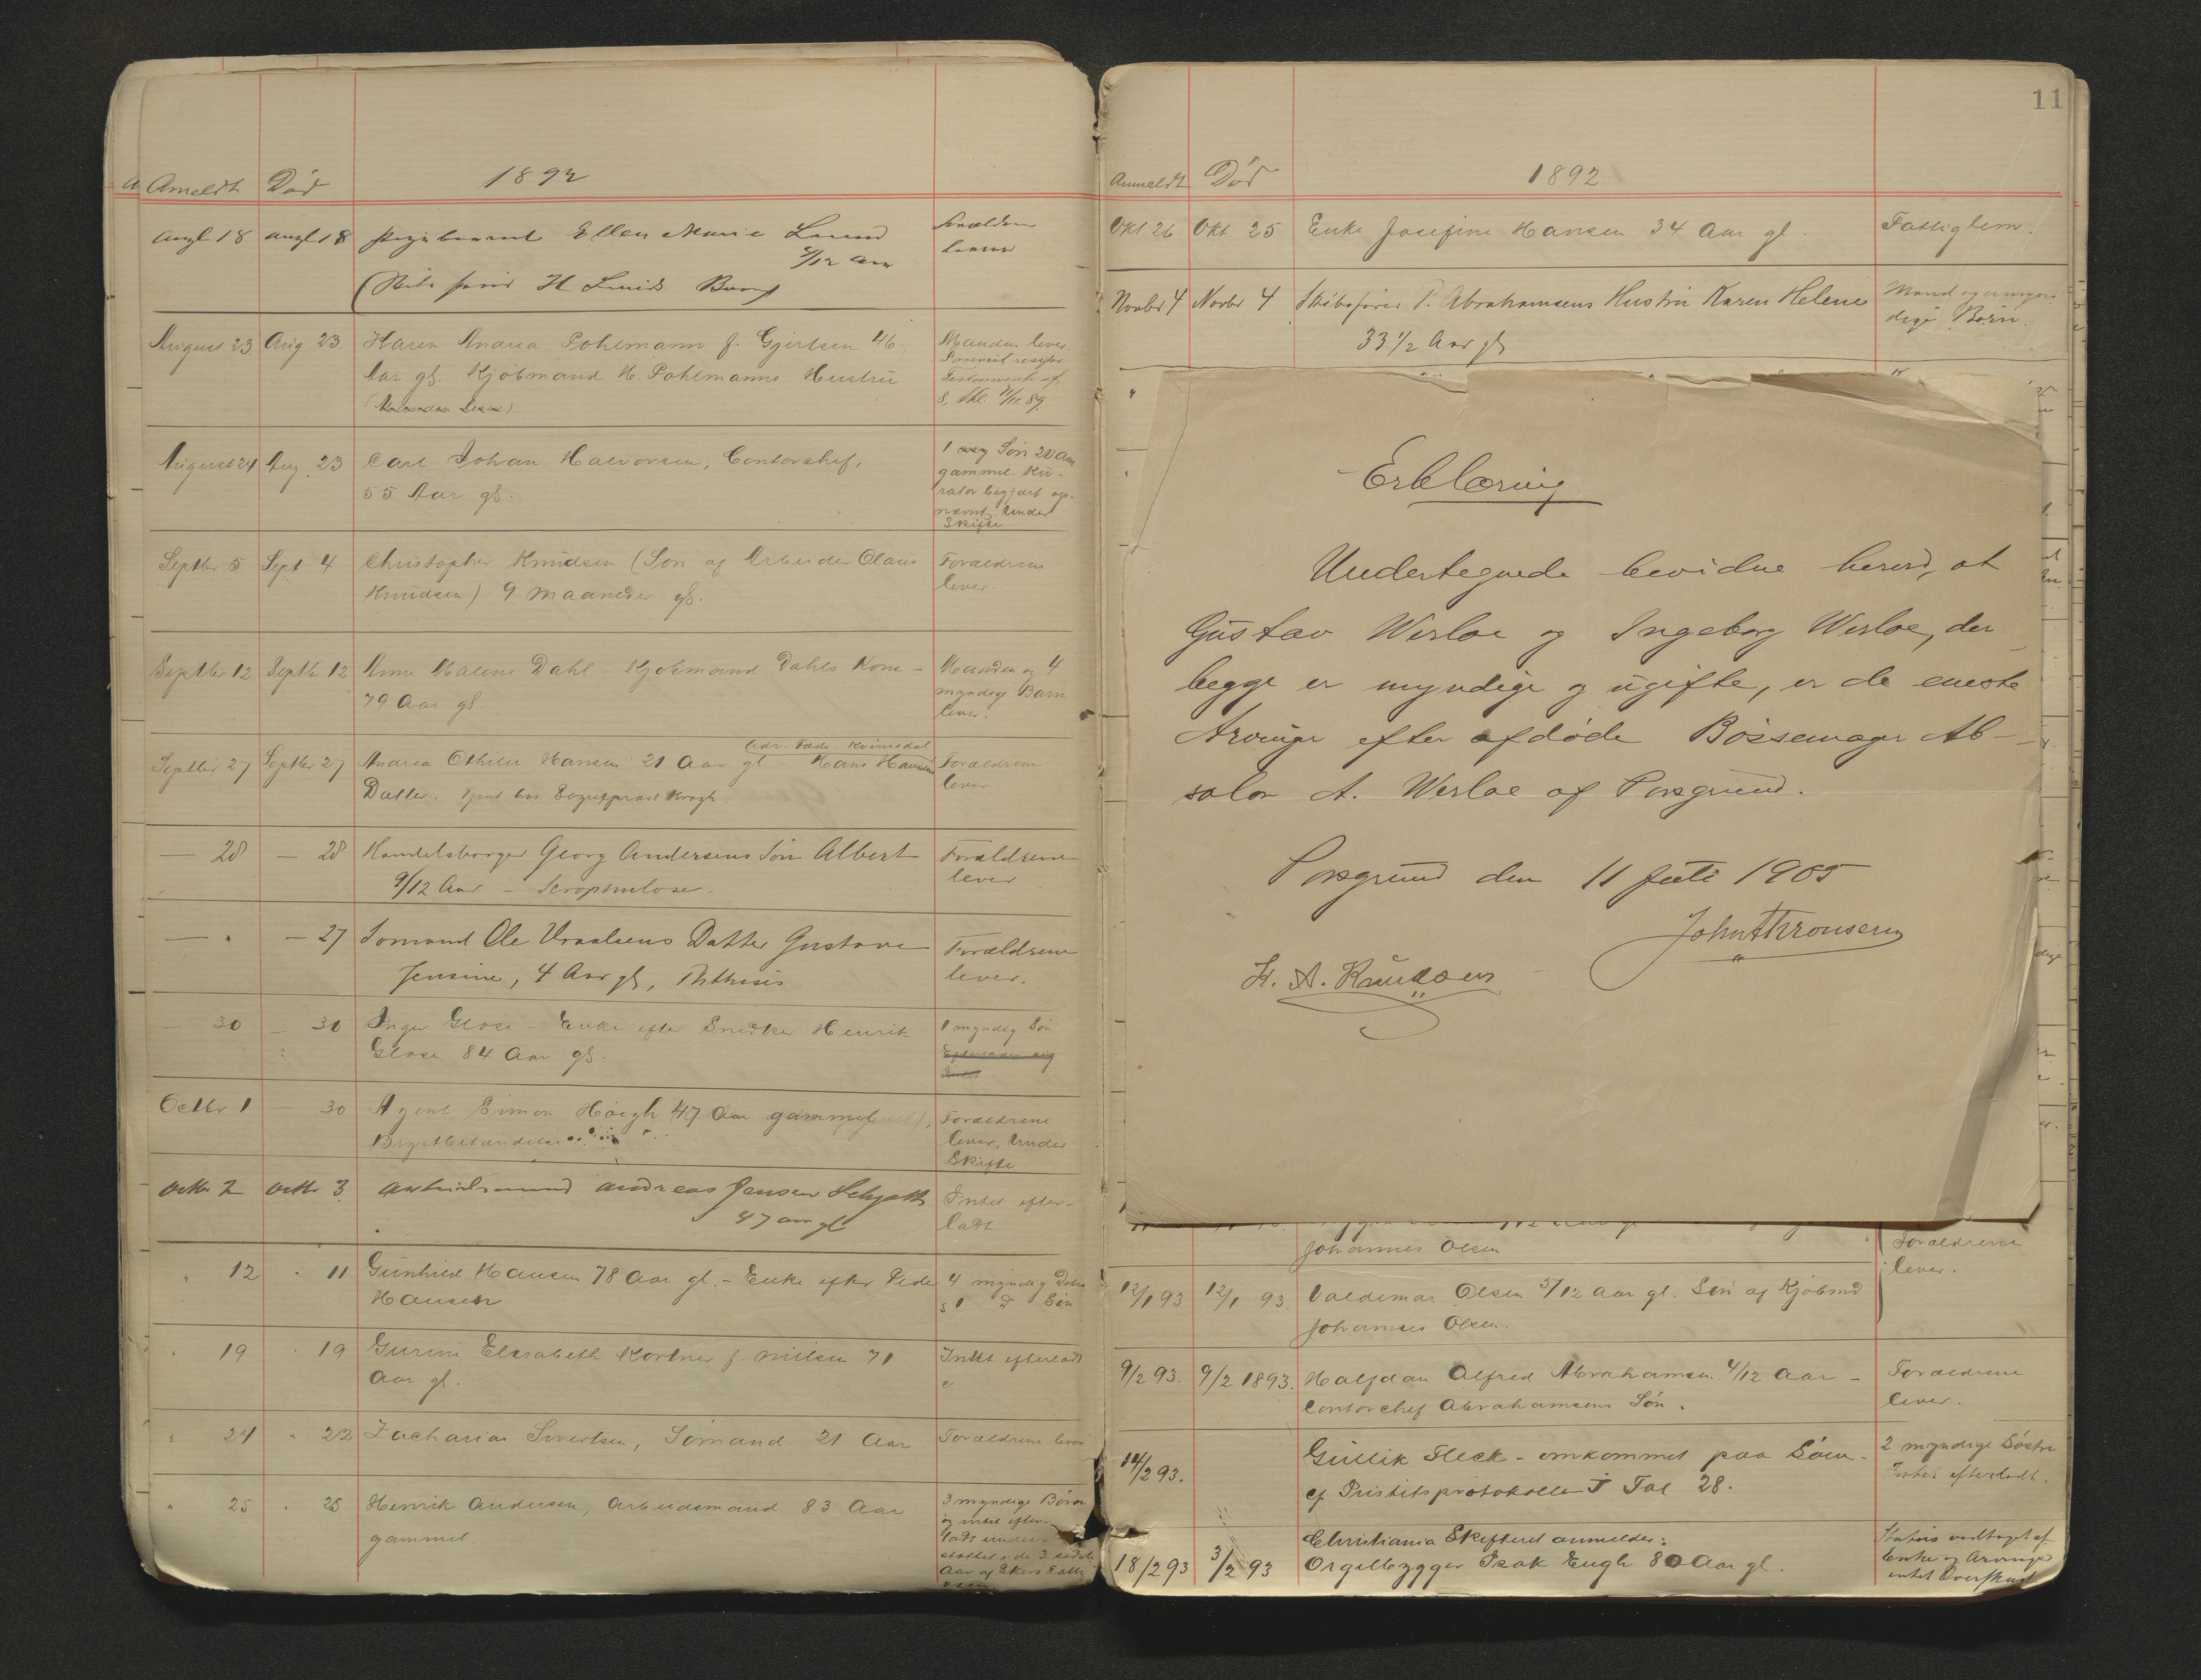 Anmeldt Død 1892
Augt 18 Augt 18 Pigebarnet Ellen Marie Lund Forældrene
/12 Aar lever
H Lunds Barn
August 23. Aug 23. Karen Andrea Pohlmann f. Gjertsen 46 Manden lever
Aar gl. Kjøbmand H. Pohlmanns Hustru Testamente af
8, Skl. 11/11. 89.
August 24 Aug. 23 Carl Johan Halvorsen, Contorchef, 1 Søn 20 Aar
55 Aar gl. gammel. Ku-
rator begjært op-
nævnt. Under
Skifte
Septbr 5 Sept 4 Christopher Knudsen (Søn af Arbeider Olaus Forældrene
Knudsen) 9 Maaneder gl. lever.
Septbr 12 Septbr 12 Anne Malene Dahl - Kjøbmand Dahls Kone - Manden og 4
79 Aar gl. myndige Børn
lever.
Adr. Fade. Kvinesdal
Septbr 27 Septbr 27 Andrea Othilie Hansen 21 Aar gl - Hans Hansens Forældrene
Datter. tjent hos Sogneprest Krogh lever
— 28 — 28 Handelsborger Georg Andersens Søn Albert Forældrene
9/12 Aar - Scrophulose. lever
— " — 27 Sømand Ole Uraalsens Datter Gustava Forældrene
Jensine, 4 Aar gl, Phthisis lever.
— 30 — 30 Inger Glose - Enke efter Snedker Henrik 1 myndig Søn
Glose 84 Aar gl.
Octbr 1 — 30 Agent Simon Høegh 47 Aar gammel Forældrene
Brystbetændelse lever, Under
Skifte
Octbr 2 Octbr 3. Arbeidsmand Andreas Jensen Schjøtt Intet efter-
47 Aar gl ladt.
" 12 " 11 Gunhild Hansen 78 Aar gl. - Enke efter Peder 4 myndig Døtre
Hansen 1 Do Søn
" 19 " 19 Gurine Elisabeth Kortner f. Nilsen 71 Intet efterladt
Aar gl.
" 24 " 22 Zacharias Sivertsen, Sømand 21 Aar Forældrene lever
" 25 " 25 Henrik Andersen, Arbeidsmand 83 Aar 3 myndige Børn
gammel. og intet efter-
ladt under-
støttet i de 3 sidste
Aar af Fattig
11
Anmeldt Død 1892
Okt 26 Okt 25 Enke Josefine Hansen 34 Aar gl. Fattiglem.
Novbr 4 Novbr 4 Skibsfører P. Abrahamsens Hustru Karen Helene Mand og umyn-
33 1/2 Aar gl dige Børn.
Erklæring
Undertegnede bevidne herved, at
Gustav Werloe og Ingeborg Werloe, der
begge er myndige og ugifte, er de eneste
Arvinge efter afdøde Bøssemager Ab-
salon A. Werloe af Porsgrund.
Porsgrund den 11 Juli 1905
John Thronsen
K. A. Knudsen
Johannes Olsen Forældrene
lever.
12/1 93 12/1 93. Valdemar Olsen 5/12 Aar gl. Søn af Kjøbmd
Johannes Olsen.
9/2 93. 9/2 1893. Halfdan Alfred Abrahamsen 4/12 Aar - Forældrene
Contorchef Abrahamsens Søn. lever.
14/2 93. Gullik Fleck - omkommet paa Søen - 2 myndige Søstre
cf Pristitsprotokollen I Fol 28. Intet efterladt.
Christiania Skifteret anmelder: Status vedtaget af
18/2 93 3/2 93 Orgelbygger Isak Engh 80 Aar gl. Enke og Arvinger
intet Overskud